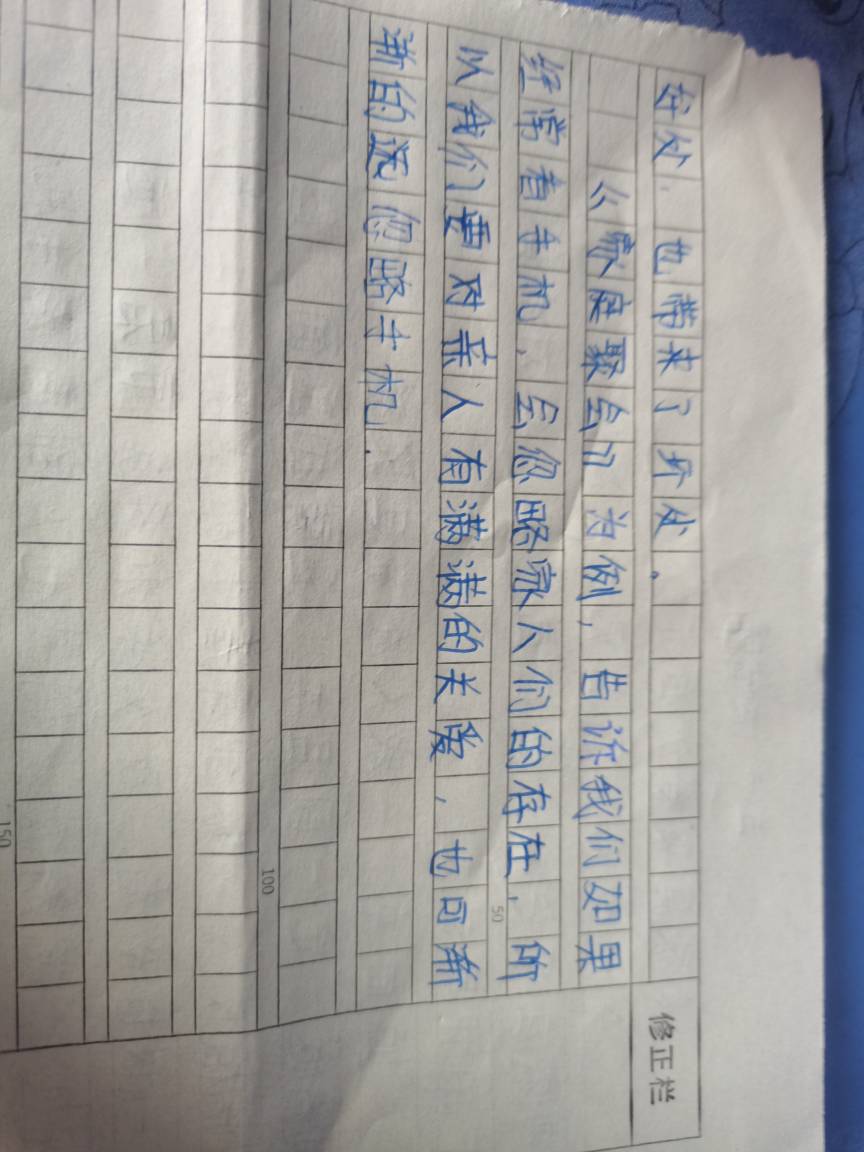 好处，也带来了坏处。
“家庭聚会”为例，告诉我们如果
经常看手机，会忽略家人们的存在，所
以我们要对亲人有满满的关爱，也可渐
渐的远忽略手机.
修正栏
50
100
150